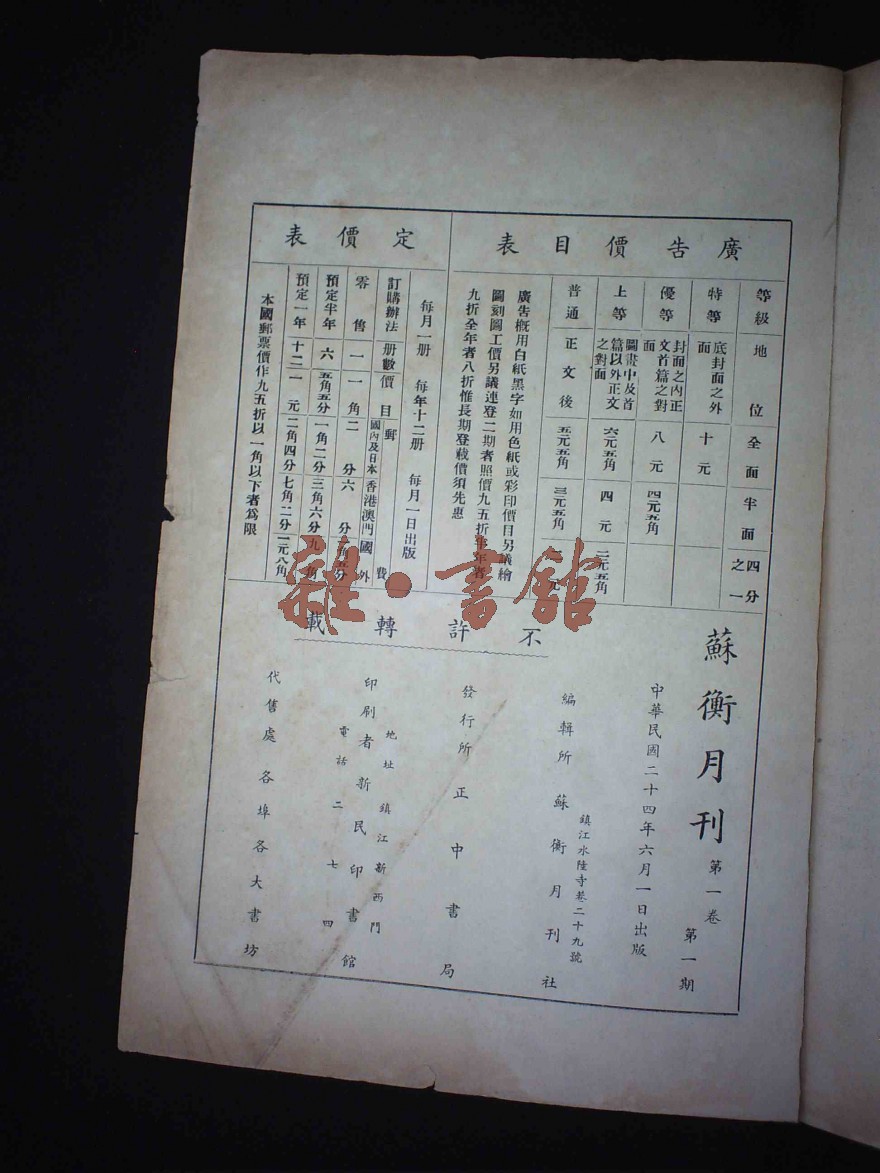 廣告價目表
等級 地位 全面 半面 四分之一
特等 底封面之外面 十元
優等 封面之內正文首篇之對面 八元 四元五角
上等 圖畫中及首篇以外正文之對面 六元五角 四元 二元五角
普通 正文後 五元五角 三元五角 二元
廣告概用白紙黑字如用色紙或彩印價目另議繪
圖刻圖工價另議連登二期者照價九五折半年者
九折全年者八折惟長期登載價須先惠
定價表
每月一册 每年十二册 每月一日出版
訂購辦法 册數 價目 郵費 國內及日本 香港澳門 國外
零售 一 一角 二分 六分 角五分
預定半年 六 五角五分 一角二分 三角六分 九角
預定一年 十二 一元 二角四分 七角二分 一元八角
本國郵票價作九五折以一角以下者爲限
蘇衡月刊 第一卷 第一期
中華民國二十四年六月一日出版
不許轉載
編輯所 蘇衡月刊社
鎮江水陸寺巷二十九號
發行所 正中書局
印刷者 新民印書館
地址 鎮江新西門
電話 二七四
代售處 各埠各大書坊
雜·書館